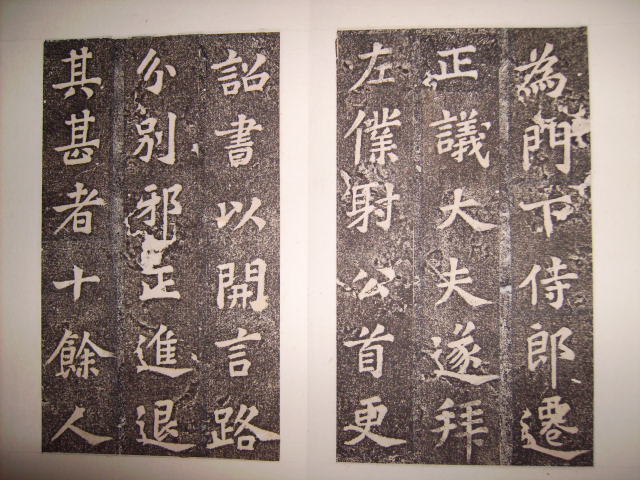 為門下侍郎遷
正議大夫遂拜
左僕射公首更
詔書以開言路
分別邪正進退
其甚者十餘人